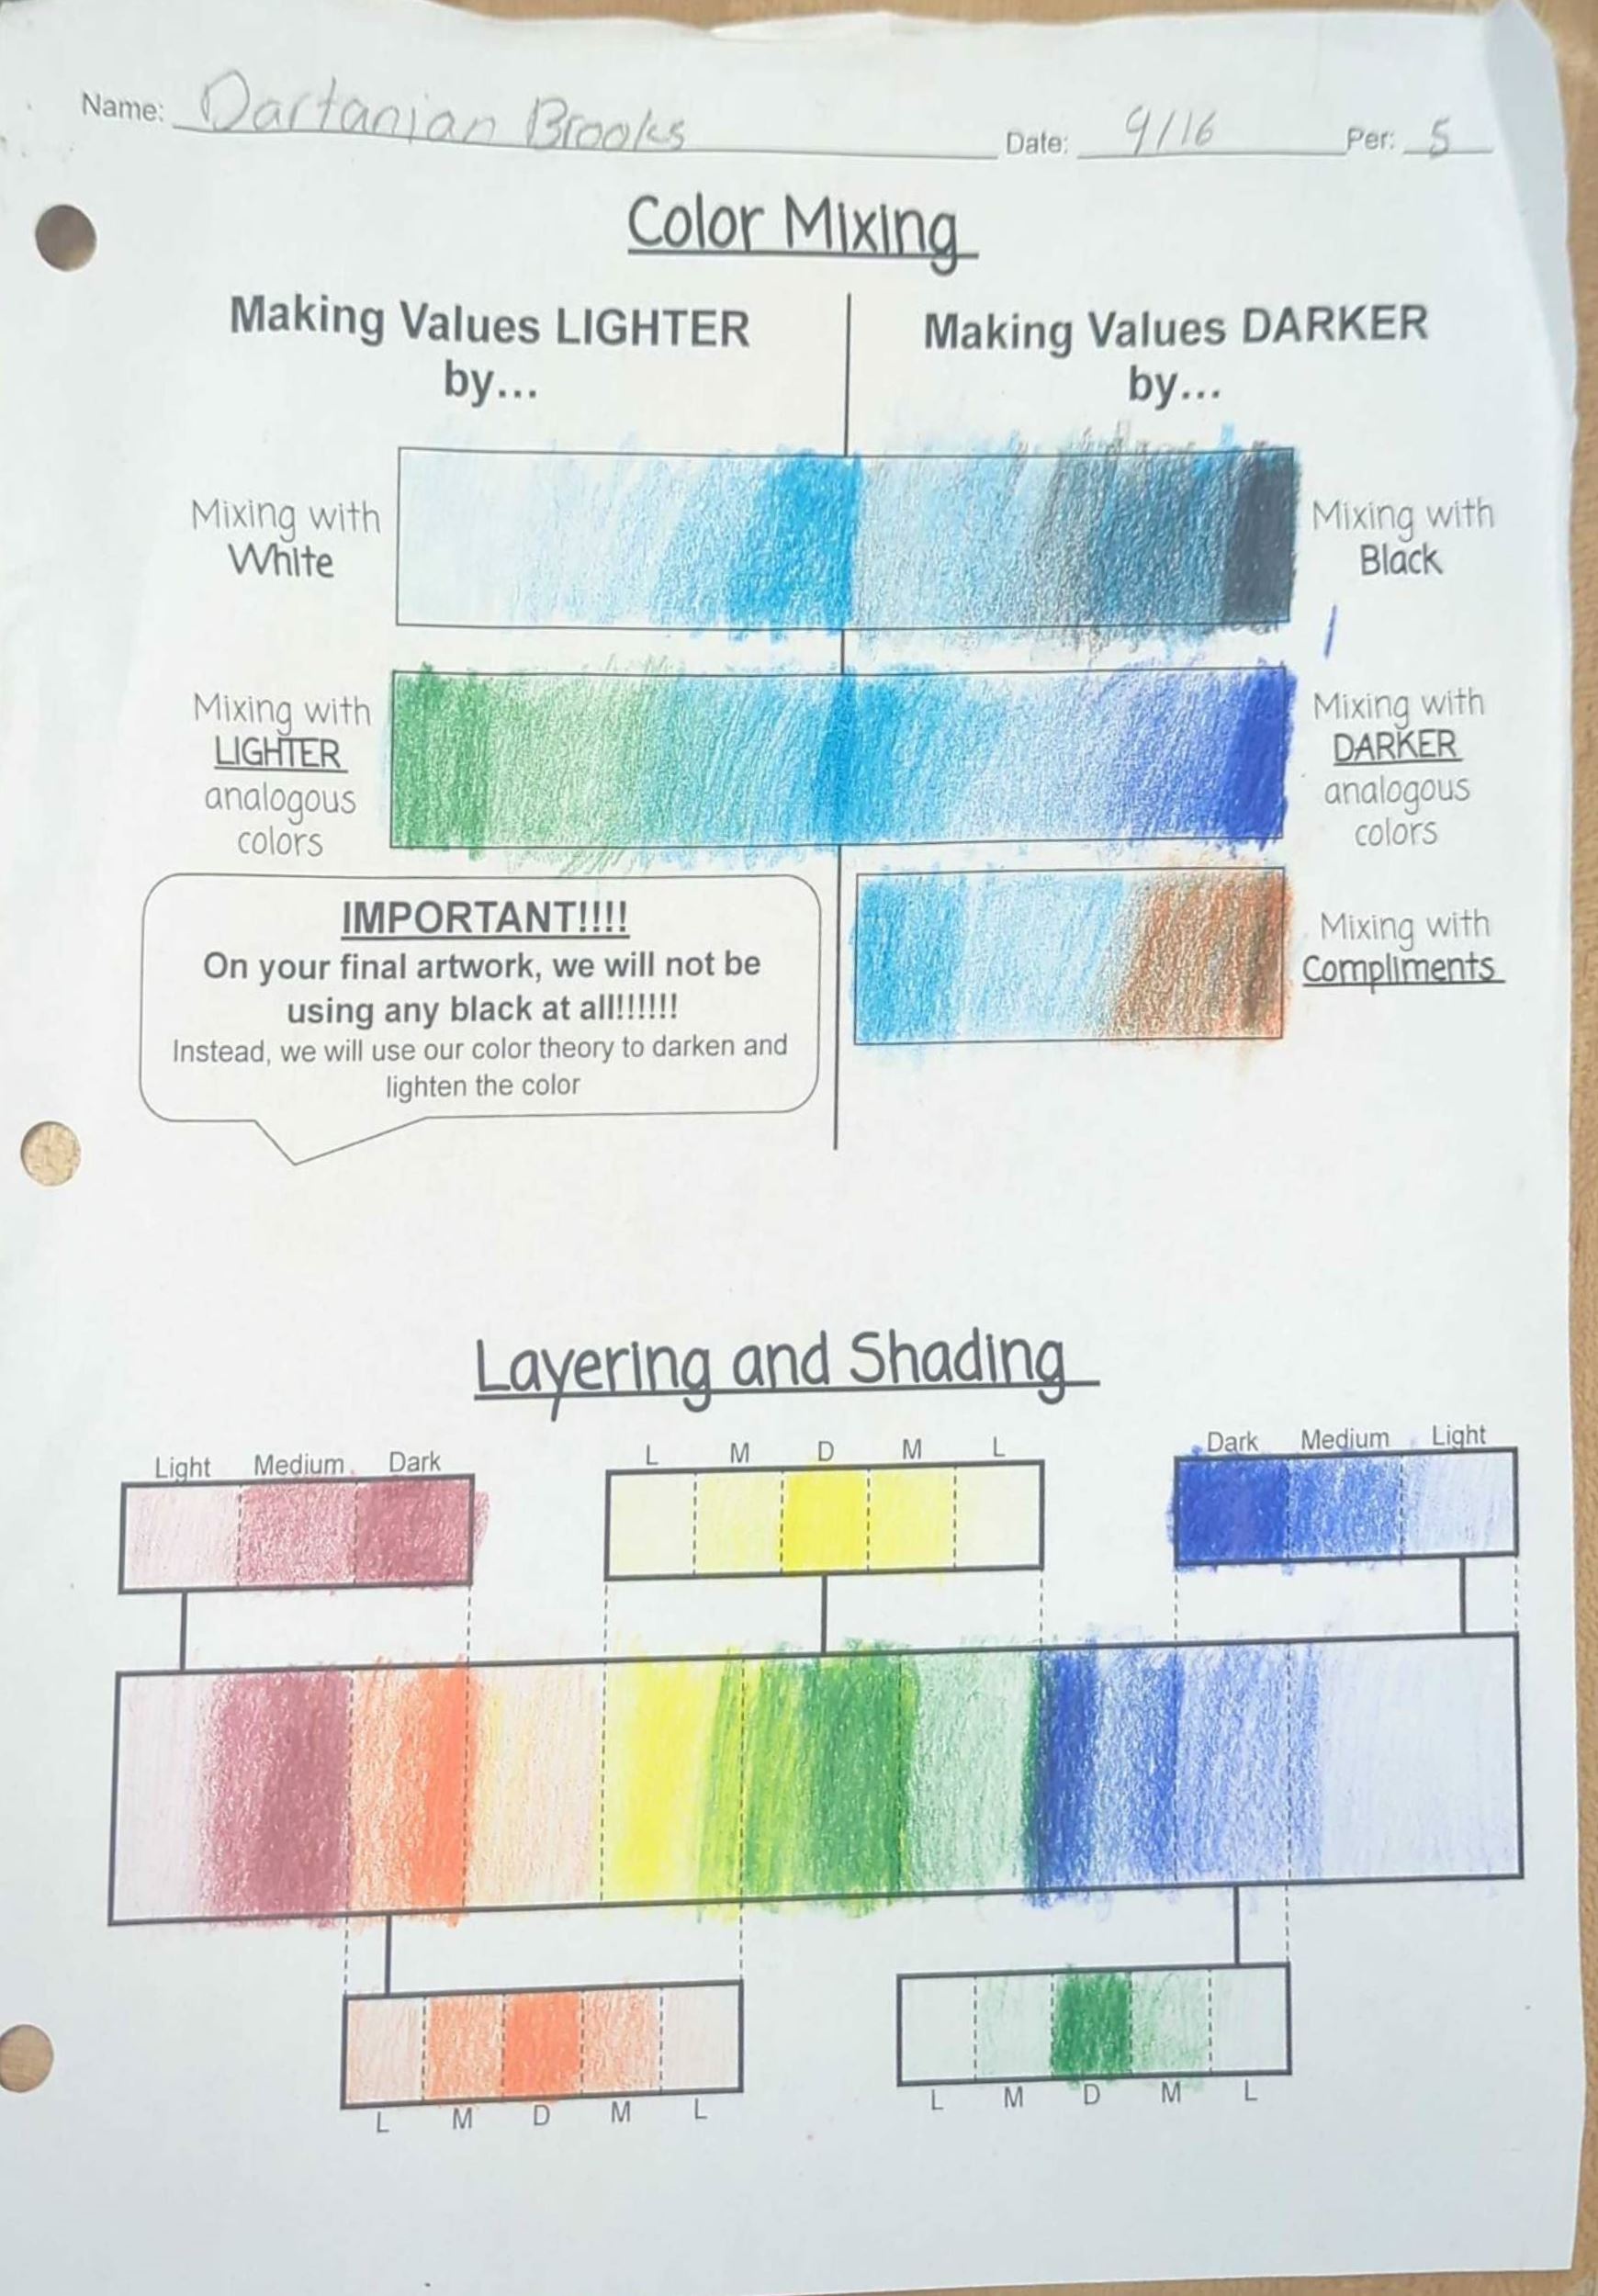 Name: Dartanian Brooks Date: 9/16 Per: 5
Color Mixing
Making Values LIGHTER
by...
Making Values DARKER
by...
Mixing with
White
Mixing with
Black
Mixing with
LIGHTER
analogous
colors
Mixing with
DARKER
analogous
colors
IMPORTANT!!!!
On your final artwork, we will not be
using any black at all!!!!!!
Instead, we will use our color theory to darken and
lighten the color
Mixing with
Compliments
Layering and Shading
Light Medium Dark
L M D M L
Dark Medium Light
L M D M L
L M D M L